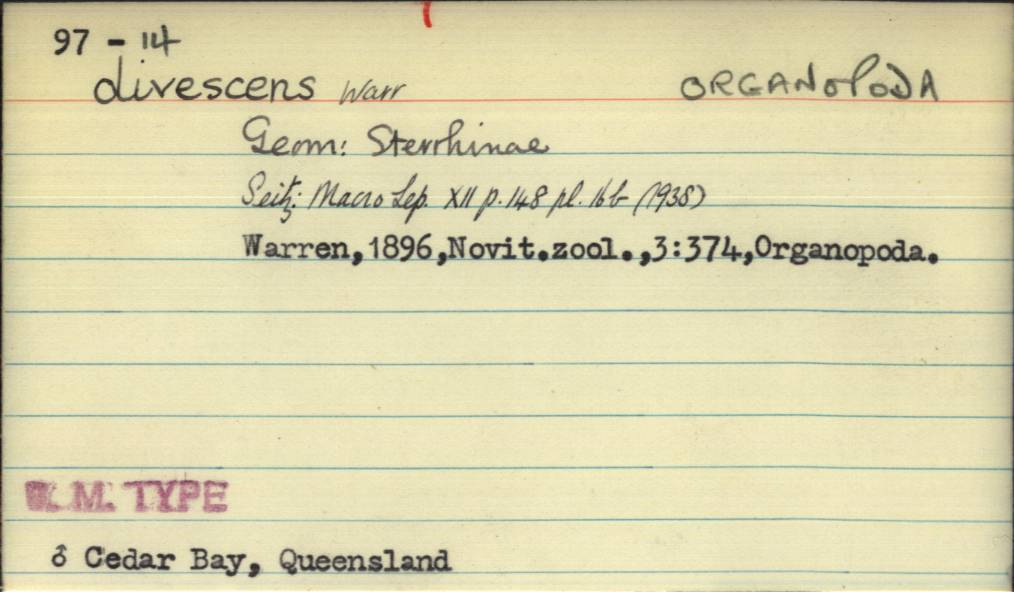 97 - 14
olivescens Warr ORGANOPODA
Geom: Sterrhinae
Seitz: Macro Lep. XII p. 148 pl. 16b (1938)
Warren,1896,Novit.zool.,3:374,Organopoda.
B.M. TYPE
♂ Cedar Bay, Queensland